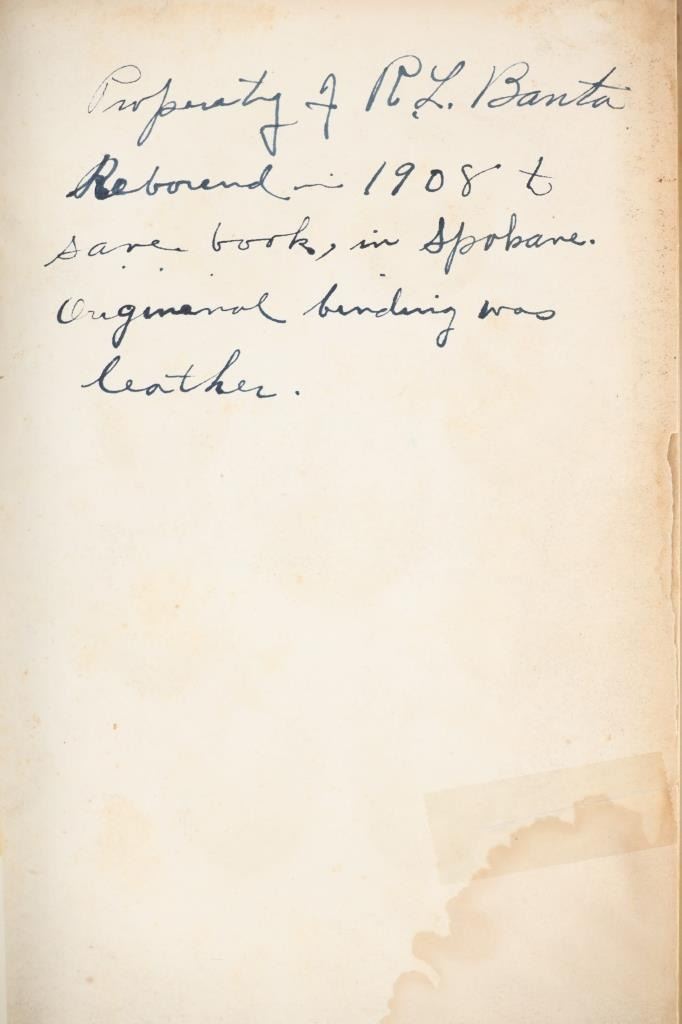 Properaty of R.L. Banta
Rebound in 1908 to
save book, in Spokane.
Origineral binding was
leather.